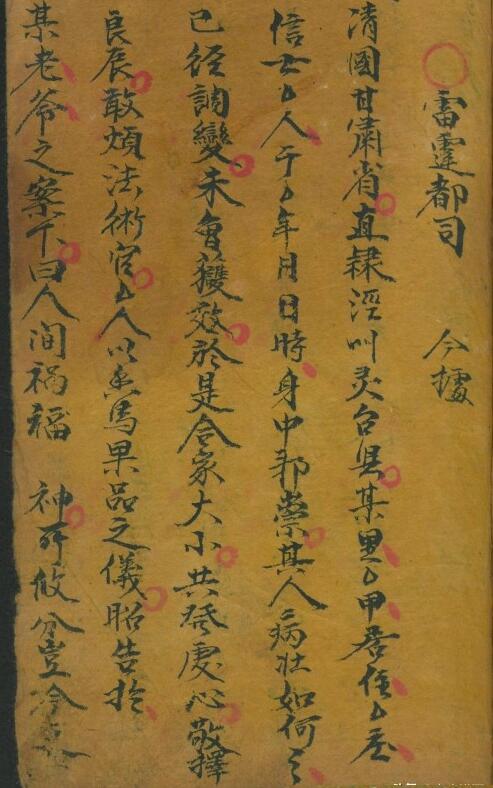 雷霆都司　今㨿
清國甘肅省直隸涇州灵台县某里厶甲居住厶庄
信士厶人于厶年月日時身中邪祟其人病壮如何之
已经調變未會獲效於是合家大小共發虔心敬擇
良辰敢煩法術官厶人以香馬果品之儀昭告於
某老爷之案下曰人间祸福　神所攸分豈